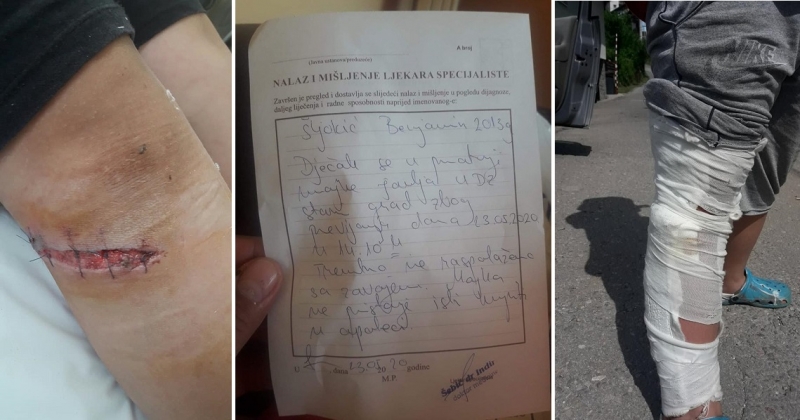 A broj
(Javna ustanova/preduzeće)
NALAZ I MIŠLJENJE LJEKARA SPECIJALISTE
Završen je pregled i dostavlja se slijedeći nalaz i mišljenje u pogledu dijagnoze,
daljeg liječenja i radne sposobnosti naprijed imenovanog-e:
Benjamin 2013g
Dječak se u pratnji
majke javlja u DZ
stari grad zbog
previjanja dana 23.05.2020
u 14.10 h
Trenutno ne raspolažemo
sa zavojem. Majka
ne pristaje isti kupiti
u apoteci
U dana 23.05 20 20 godine
M.P.
NIKE